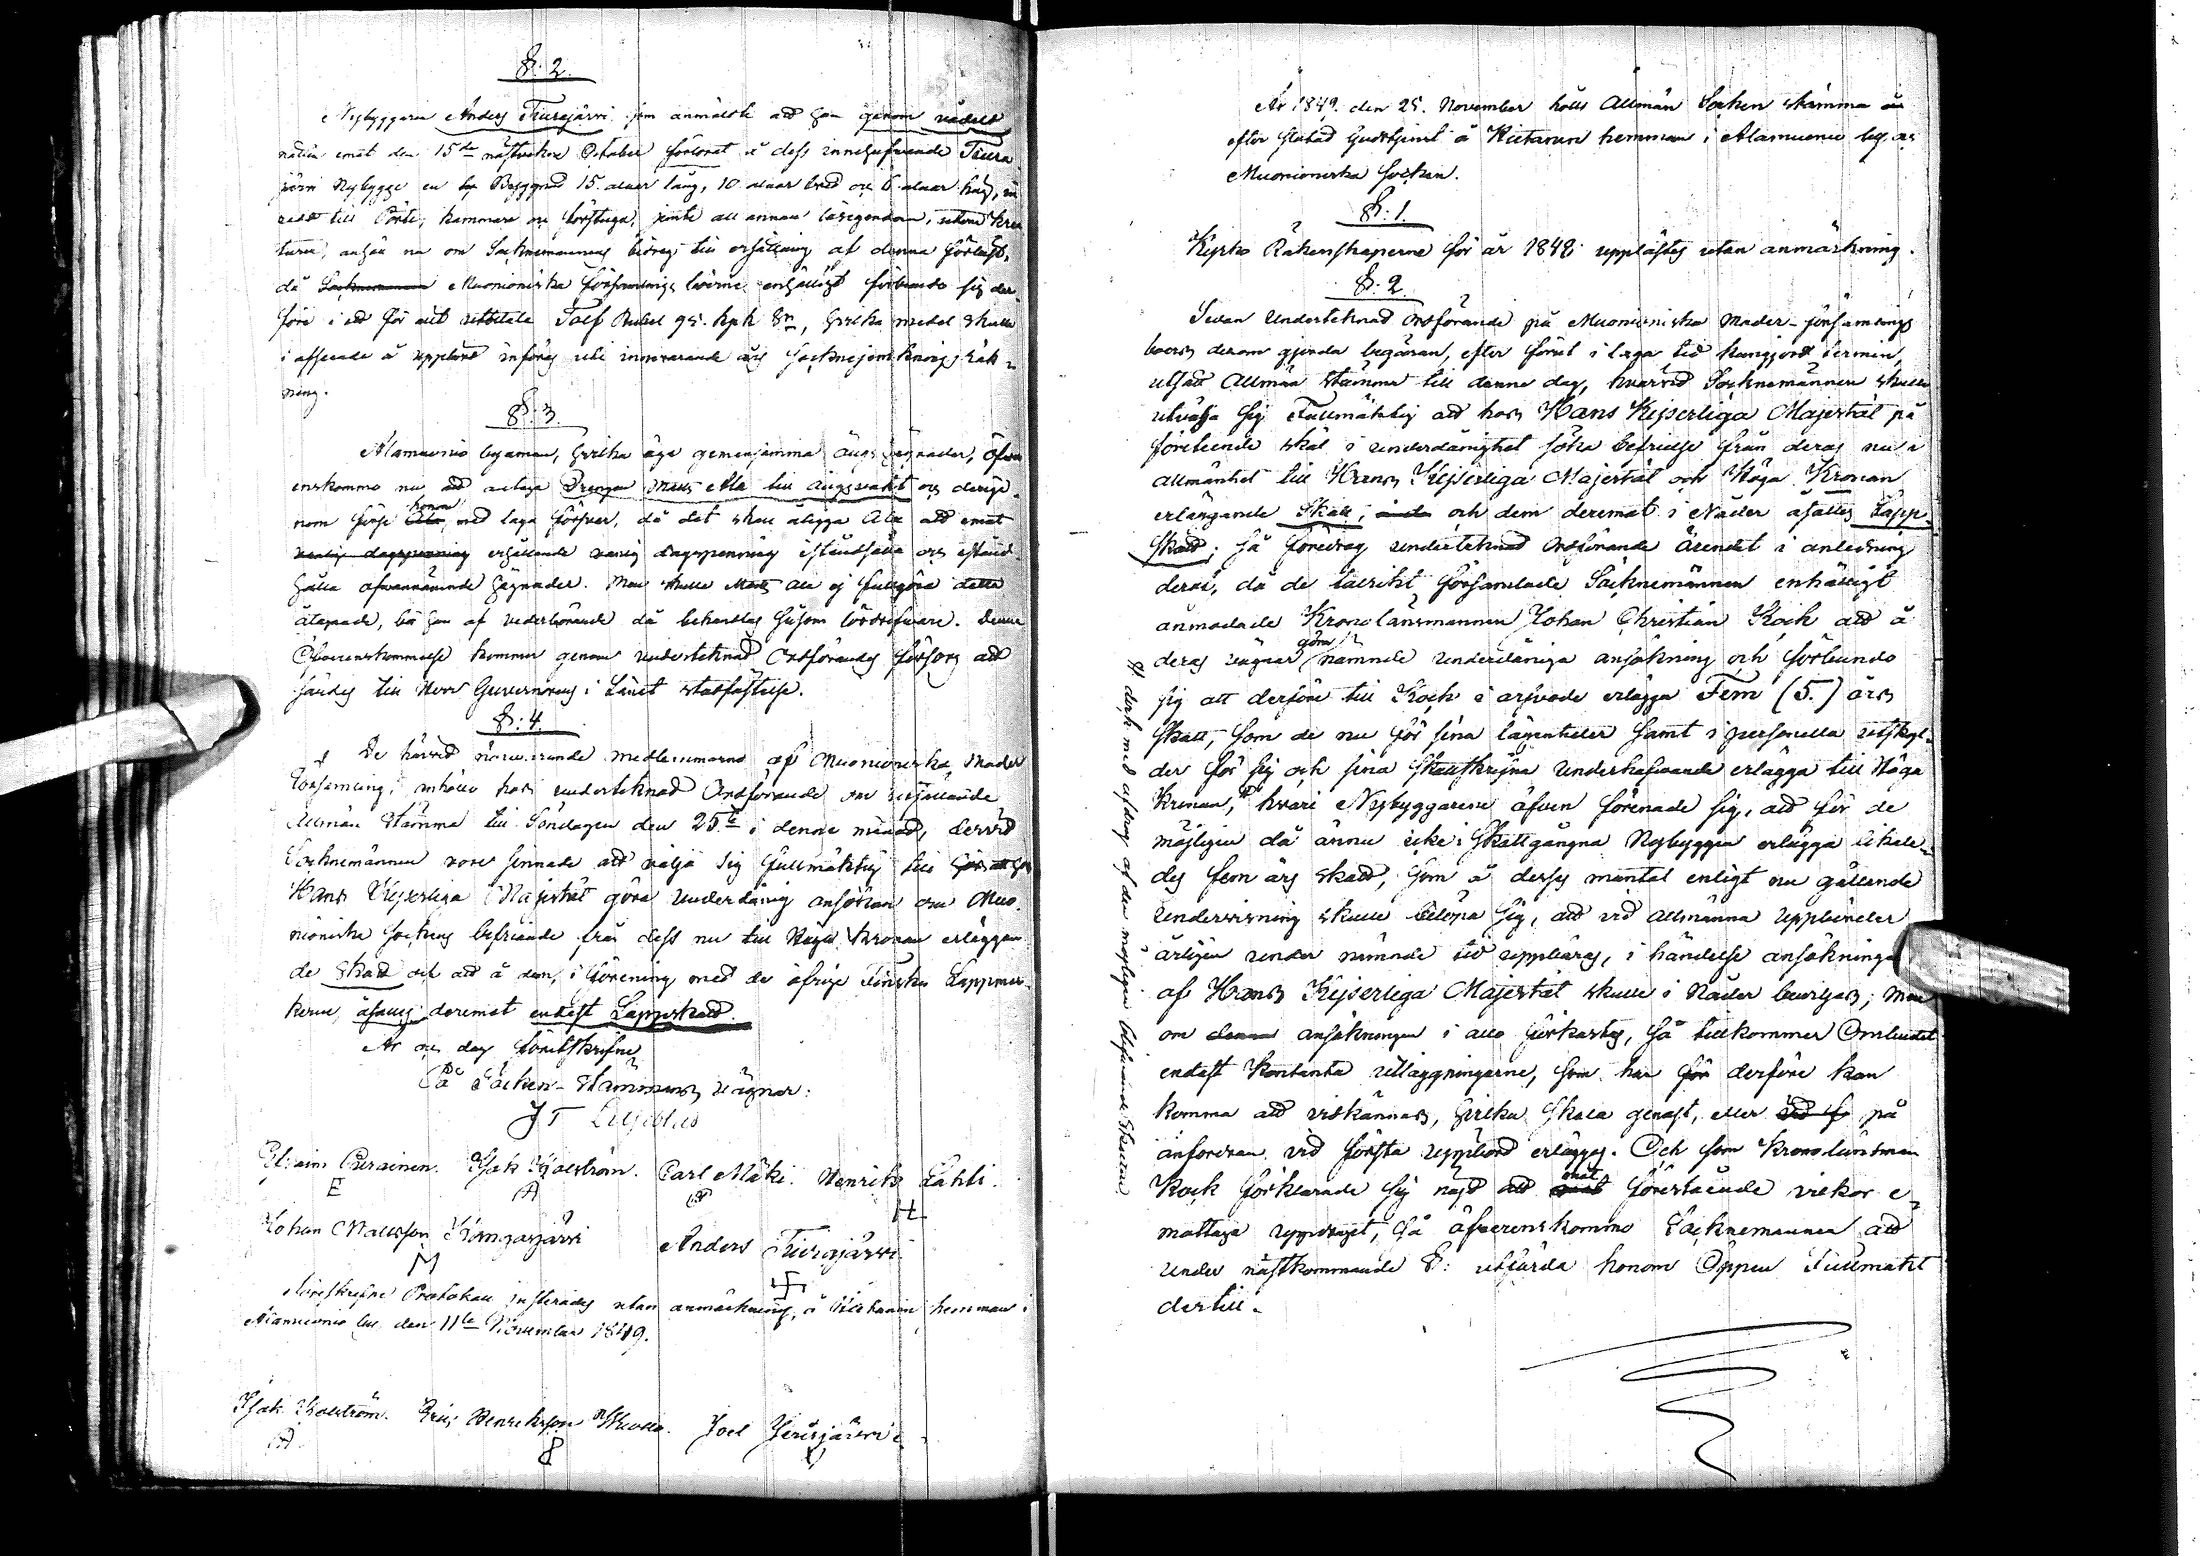 §. 2.
Nybyggaren Anders Tiurajärvi som anmälte att han genom vådeld
natten emot den 15de nästvekne October förlorat å dess innehafwande Tiura
järvi Nybygge en Byggnad 15. alnar lång, 10. alnar bred och 6. alnar hög, in
redd till Pörte, kammare och förstuga, jemte all annan lösegendom, utom krea
turen, anhöll nu om Socknemännens bidrag till ersättning af denna förlust,
då Socknemännen Muonioniska församlings boerne enhälligt förbundo sig der-
före i ett för allt utbetala Tolf Rubel 95. kpk Sr, hvilka medel skulle
i afseende å uppbörd införas uti innevarande års Sockne jemknings räk-
ning.
§. 3.
Alamuonio byamän, hvilka äga gemensamma ängs hägnader, öfver
enskommo nu att antaga Drengen Matts Ala till ängsvakt och derige-
nom förse honom Ala, med laga försvar, då det skall åligga Ala att emot
vanlig dagspenning erhållande vanlig dagspenning iståndsätta och istånd
hålla ofvannämnde hägnader. Men skulle Matts Ala ej fullgöra detta
åtagande, bör han af vederbörande då behandlas såsom lösdrifware. Denna
Öfverenskommelse kommer genom undertecknad Ordförandes försorg att
sändas till Herr Guverneurens i Länet stadfästelse.
§. 4.
De härvid närvarande medlemmarna af Muonioniska Moder
församling, anhöllo hos undertecknad Ordförande om utsättande
Allmän Stämma till Söndagen den 25te i denna månad, dervid
Socknemännen vore sinnade att välja sig fullmäktig till för att hos
Hans Kejserliga Majestät göra underdånig ansökan om Muo-
nioniska sockens befriande från dess nu till Höga Kronan erläggan
de Skatt och att å den, i förening med de öfriga Finska Lappmar-
kerne, åsättes deremot endast Lappskatt.
År och dag förutskrifne
På Socken-Stämmans vägnar:
J T Liljeblad
Efraim Purainen. Isak Hjelström. Carl Mäki. Henrik Lahti.
E
H
Johan Mattsson Kangasjärvi
Anders Tiurajärvi
M
Föreskrefne Protokoll justerades utan anmärkning, å Kietarin hemman i
Alamuonio by den 11te November 1849.
Isak Hjelström. Eric Henriksson Joel Jerisjärvi
År 1849. den 25. November hölls Allmän Socken stämma
efter slutad Gudstjenst å Kietarin hemman i Alamuonio by och
Muonioniska socken.
§. 1.
Kyrko Räkenskaperne för år 1848 upplästes utan anmärkning.
§. 2.
Sedan Undertecknad Ordförande på Muonioniska Moder-församlings
boers derom gjorda begäran, efter förut i laga tid kungjord termin,
utsatt Allmän stämma till denna dag, hvarvid Socknemännen skulle
utvälja sig Fullmäktig att hos Hans Kejserliga Majestät på
företeende skäl i underdånighet söka befrielse från deras nu i
allmänhet till Hans Kejserliga Majestät och Höga Kronan
erläggande Skatt, och dem deremot i Nåder åsättes Lapp-
skatt; så föredrog undertecknad Ordförande ärendet i anledning
deraf, då de talrikt församlade Socknemännen enhälligt
anmodade Kronolänsmannen Johan Christian Kock att å
deras vägnar göra nämnde underdåniga ansökning och förbundo
sig att derföre till Kock i arfvode erlägga Fem (5.) års
Skatt, som de nu för sina lägenheter samt i personella utskyl-
der för sig och sina skattskrifna underhafwande erlägga till Höga
Kronan, # hvari Nybyggarene äfven förenade sig, att för de
möjligen då ännu icke i skatt gångna Nybyggen erlägga likale-
des fem års skatt, som å dess mantal enligt nu gällande
Undervisning skulle belöpa sig, att vid allmänna uppbörder
årligen under nämnde tid uppbäras, i händelse ansökningen
af Hans Kejserliga Majestät skulle i Nåder beviljas; Men
om denna ansökningen i allo förkastas, så tillkommer Ombudet
endast kontanta utläggningarne, som han för derföre kan
komma att vidkännas, hvilka skola genast, eller på
anfordran vid första uppbörd erläggas. Och som Kronolänsman
Kock förklarade sig nöjd att emot förestående vilkor e-
mottaga uppdraget, så öfverenskommo Socknemännen att
under nästkommande §: utfärda honom Öppen Fullmakt
dertill.
# dock med afdrag af den möjligen